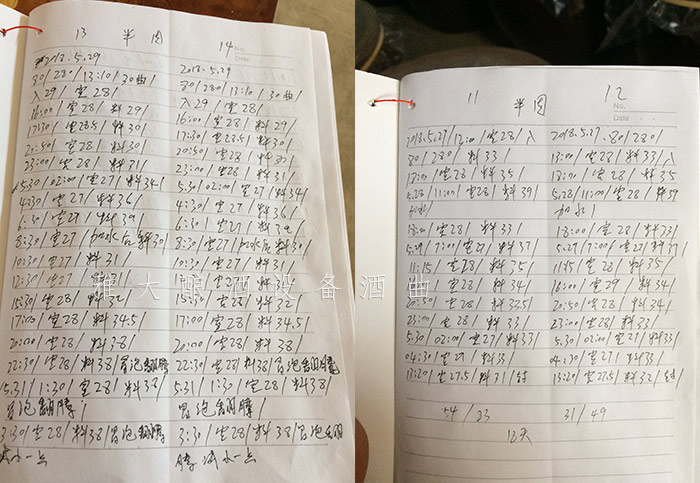 13 半固 14
No.
Date
2018.5.29
30/28/13:10/30曲/
入29/室28/
16:00/室28/料29/
17:30/室28.5/料30/
20:50/室28/料30/
23:00/室28/料31/
5.30/02:00/室27/料34/
4:30/室27/料36/
6:30/室27/料39/
8:30/室27/加水后料30/
10:30/室27/料31/
12:30/室27/料31/
15:30/室28/料32/
17:00/室28/料34.5/
20:00/室28/料38/
22:30/室28/料38/冒泡翻腾
5.31/1:30/室28/料38/
冒泡翻腾/
3:30/室28/料38/冒泡翻腾
减小一点
2018.5.29
30/280/13:10/30曲/
入29/室28/
16:00/室28/料29/
17:30/室28.5/料30/
20:50/室28/料30/
23:00/室28/料31/
5.30/02:00/室27/料34/
4:30/室27/料36/
6:30/室27/料39/
8:30/室27/加水后料30/
10:30/室27/料31/
室27/料31/
15:30/室28/料32/
17:00/室28/料34.5/
20:00/室28/料38/
22:30/室28/料38/冒泡翻腾
5.31/1:30/室28/料38/
冒泡翻腾/
3:30/室28/料38/冒泡翻
腾减小一点
11 半固 12
No.
Date
2018.5.27/12:00/室28/入
30/280/料33/
18:00/室28/料35/
5.28/11:00/室28/料39/
加水/
18:00/室28/料33/
5.29/7:00/室27/料37/
11:15/室28/料35/
料34/
20:50/室28/料33.5/
23:00/室28/料33/
5.30/02:00/室27/料33/
04:30/室27/料33/
13:20/室27.5/料31/封
2018.5.27.30/280/
13:00/室28/料33/入
18:00/室28/料35/
5.28/11:00/室28/料39
加水/
18:00/室28/料33/
5.29/7:00/室27/料37/
11:15/室28/料35/
16:00/室29/料34/
20:50/室28/料34/
23:00/室28/料33/
5.30/02:00/室27/料33/
04:30/室27/料33/
13:20/室27.5/料32/封
54/33 31/49
12天
雅大酿酒设备酒曲